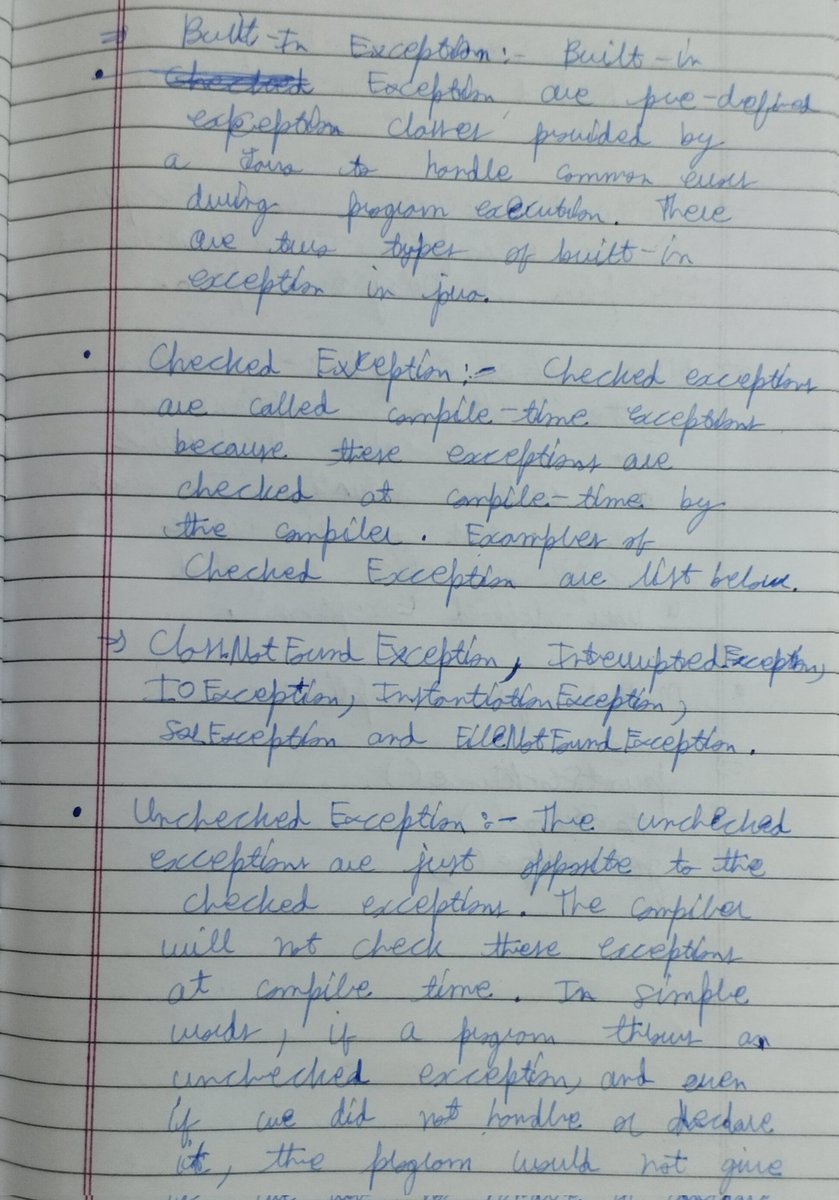 ⇒ Built-In Exception:- Built-in
• Exception are pre-defined
expception classes provided by
a Java to handle common error
during program execution. There
are two types of built-in
exception in java.
• Checked Exception:- Checked exceptions
are called compile-time exceptions
because these exceptions are
checked at compile-time by
the compiler. Examples of
Checked Exception are list below.
→ ClassNotFound Exception, InterruptedException,
IOException, InstantiationException,
SQLException and FileNotFoundException.
• Unchecked Exception:- The unchecked
exceptions are just opposite to the
checked exceptions. The compiler
will not check these exceptions
at compile time. In simple
words, if a program throws an
unchecked exception, and even
if we did not handle or declare
it, the program would not give